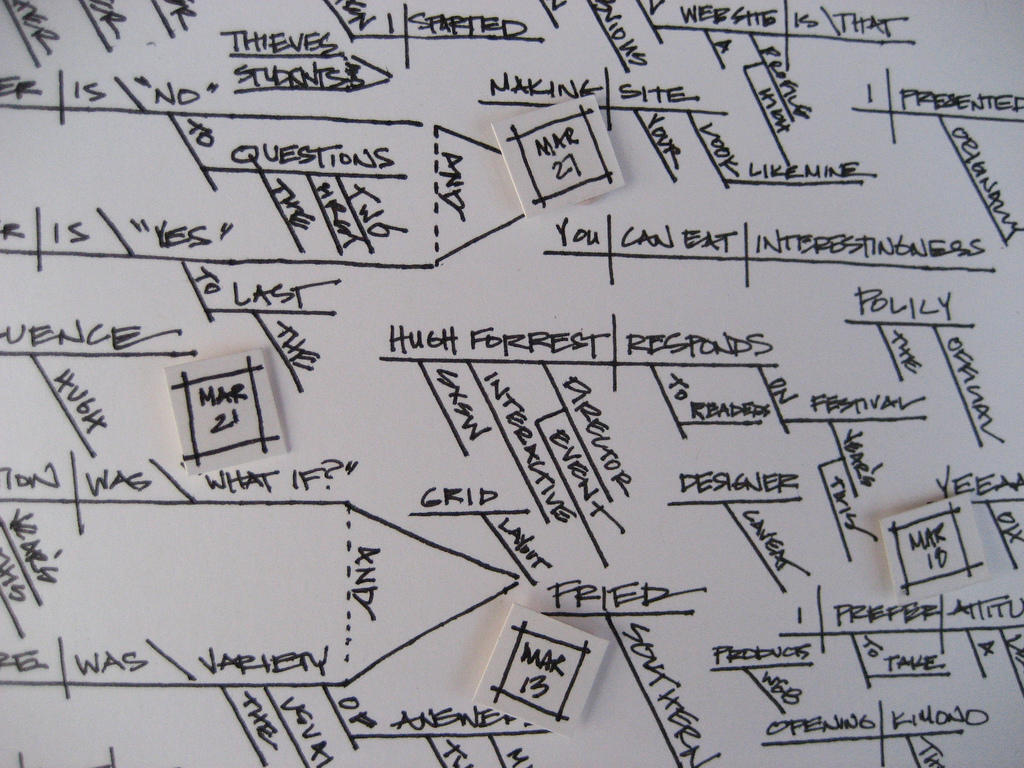 I STARTED
WEBSITE IS THAT
A PEOPLE
THIEVES
STUDENTS
IS "NO"
TO QUESTIONS
THE FIRST TWO
AND
MAKING SITE
YOUR LOOK LIKE MINE
MAR
27
I PRESENTED
ORIGINALLY
IS "YES"
TO LAST
THE
YOU CAN EAT INTERESTINGNESS
POLICY
THE OFFICIAL
UENCE
HUGH
MAR
21
HUGH FORREST RESPONDS
SXSW INTERACTIVE EVENT DIRECTOR
TO READERS
ON FESTIVAL
THIS YEAR'S
TION WAS "WHAT IF?"
AND
GRID
LAYOUT
DESIGNER
YEEAA
MAR
18
FRIED
SOUTHERN
I PREFER ATTITU
TO TAKE
A
PRODUCTS
WEB
WAS VARIETY
THE USUAL
OF ANSWER
MAR
13
OPENING KIMONO